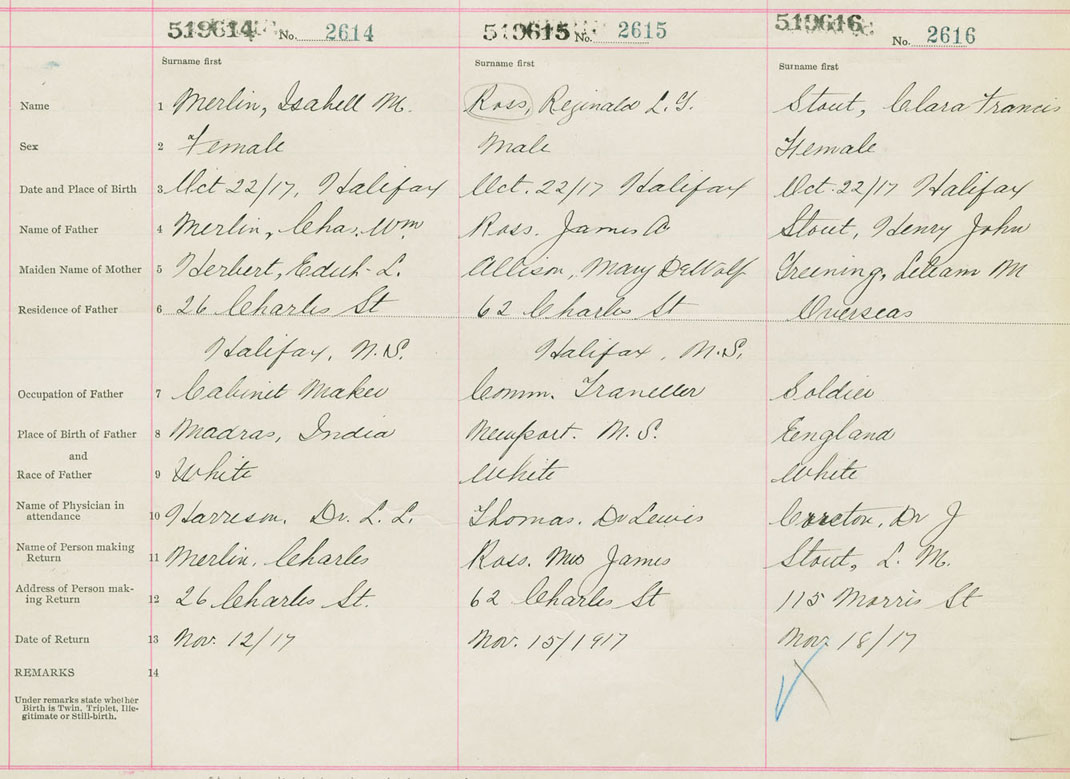 519614 No. 2614 519615 No. 2615 519616 No. 2616
Surname first Surname first Surname first
Name 1 Merlin, Isabell M. Ross, Reginald L. G. Stout, Clara Francis
Sex 2 Female Male Female
Date and Place of Birth 3 Oct 22/17, Halifax Oct. 22/17 Halifax Oct. 22/17 Halifax
Name of Father 4 Merlin, Chas. Wm Ross. James A Stout, Henry John
Maiden Name of Mother 5 Herbert, Edith L. Allison, Mary DeWolf Greening, Lileam M
Residence of Father 6 26 Charles St 62 Charles St Overseas
Halifax, N.S. Halifax, N.S.
Occupation of Father 7 Cabinet Maker Comm. Traveller Soldier
Place of Birth of Father 8 Madras, India Newport. N.S. England
and
Race of Father 9 White White White
Name of Physician in
attendance 10 Harrison, Dr. L. L. Thomas. Dr Lewis Dr J
Name of Person making
Return 11 Merlin, Charles Ross. Mrs James Stout, L. M.
Address of Person mak-
ing Return 12 26 Charles St. 62 Charles St 115 Morris St
Date of Return 13 Nov. 12/17 Nov. 15/1917 Nov. 18/17
REMARKS 14
Under remarks state whether
Birth is Twin, Triplet, Ille-
gitimate or Still-birth.